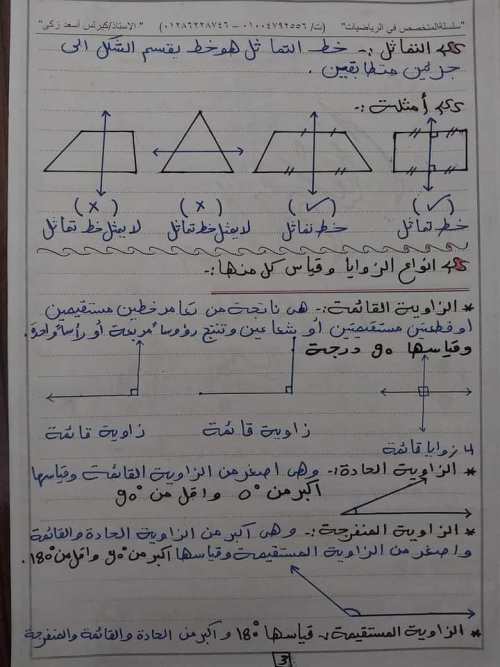 "سلسلة المتخصص في الرياضيات" (ت/ ٠١٠٠٤٧٩٢٥٥٦ – ٠١٢٨٦٢٢٨٧٤٦) "الاستاذ/كيرلس أسعد زكي"
التماثل :- خط التماثل هو خط يقسم الشكل الى
جزئين متطابقين .
أمثلة :-
(✓) (✓) (×) (×)
خط تماثل خط تماثل لا يمثل خط تماثل لا يمثل خط تماثل
انواع الزوايا وقياس كل منها :-
* الزاوية القائمة :- هى ناتجة من تعامد خطين مستقيمين
او قطعتين مستقيمتين أو شعاعين وتنتج رؤوسا مربعة أو رأسا واحدة.
وقياسها 90 درجة
٤ زوايا قائمة زاوية قائمة زاوية قائمة
* الزاوية الحادة :- وهى اصغر من الزاوية القائمة وقياسها
اكبر من 0° واقل من 90°
* الزاوية المنفرجة :- وهى اكبر من الزاوية الحادة والقائمة
واصغر من الزاوية المستقيمة وقياسها اكبر من 90° واقل من 180°.
* الزاوية المستقيمة :- قياسها 180° واكبر من الحادة والقائمة والمنفرجة
3